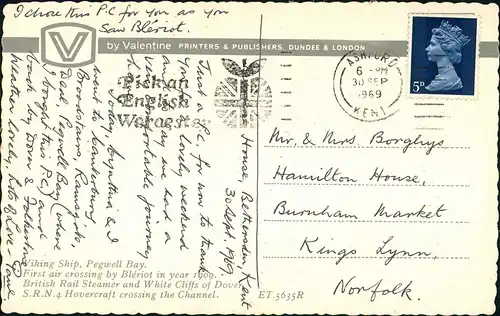 I chose this P.C for you as you
saw Blériot.
V
by Valentine PRINTERS & PUBLISHERS, DUNDEE & LONDON
Pick an
English
Worcester
ASHFORD
6 PM
30 SEP
1969
KENT
5D
House, Bethersden Kent
30 Sept. 1969.
Just a P.C. for now to thank
you lovely weekend
we had a
journey
Today, Cynthia & I
went to Canterbury,
Broadstairs, Ramsgate,
Deal, Pegwell Bay (where
I bought this P.C.) and
back by Dover & Folkestone
weather lovely, lots of love Paul
Mr, & Mrs. Borghys
Hamilton House,
Burnham Market
Kings Lynn,
Norfolk.
Viking Ship, Pegwell Bay.
First air crossing by Blériot in year 1909.
British Rail Steamer and White Cliffs of Dover
S.R.N.4 Hovercraft crossing the Channel.
ET.5635R